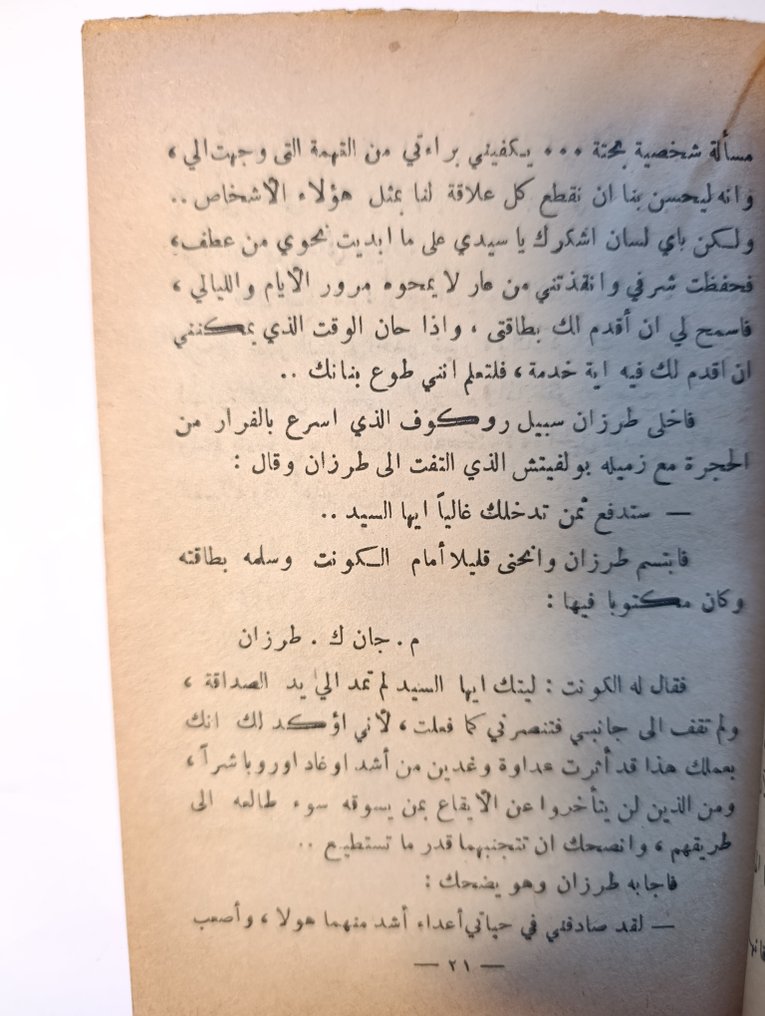 مسألة شخصية بحتة ... يكفيني براءتي من التهمة التى وجهت الي ،
وانه ليحسن بنا ان نقطع كل علاقة لنا بمثل هؤلاء الاشخاص ..
ولكن باي لسان اشكرك يا سيدي على ما ابديت نحوي من عطف،
فحفظت شرفي وانقذتني من عار لا يمحوه مرور الايام والليالي ،
فاسمح لي ان أقدم لك بطاقتى ، واذا حان الوقت الذي يمكنني
ان اقدم لك فيه اية خدمة ، فلتعلم انني طوع بنانك ..
فاخلى طرزان سبيل روكوف الذي اسرع بالفرار من
الحجرة مع زميله بولفيتش الذي التفت الى طرزان وقال :
— ستدفع ثمن تدخلك غالياً ايها السيد ..
فابتسم طرزان وانحنى قليلا أمام الكونت وسلمه بطاقته
وكان مكتوبا فيها :
م . جان ك . طرزان
فقال له الكونت : ليتك ايها السيد لم تمد الي يد الصداقة ،
ولم تقف الى جانبي فتنصرني كما فعلت ، لأني اؤكد لك انك
بعملك هذا قد أثرت عداوة وغدين من أشد اوغاد اوروبا شراً ،
ومن الذين لن يتأخروا عن الايقاع بمن يسوقه سوء طالعه الى
طريقهم ، وانصحك ان تتجنبهما قدر ما تستطيع ..
فاجابه طرزان وهو يضحك :
— لقد صادفني في حياتي أعداء أشد منهما هولا ، وأصعب
— ٢١ —